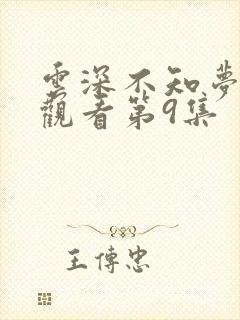 雲深不知夢
觀看第9集
王傳忠